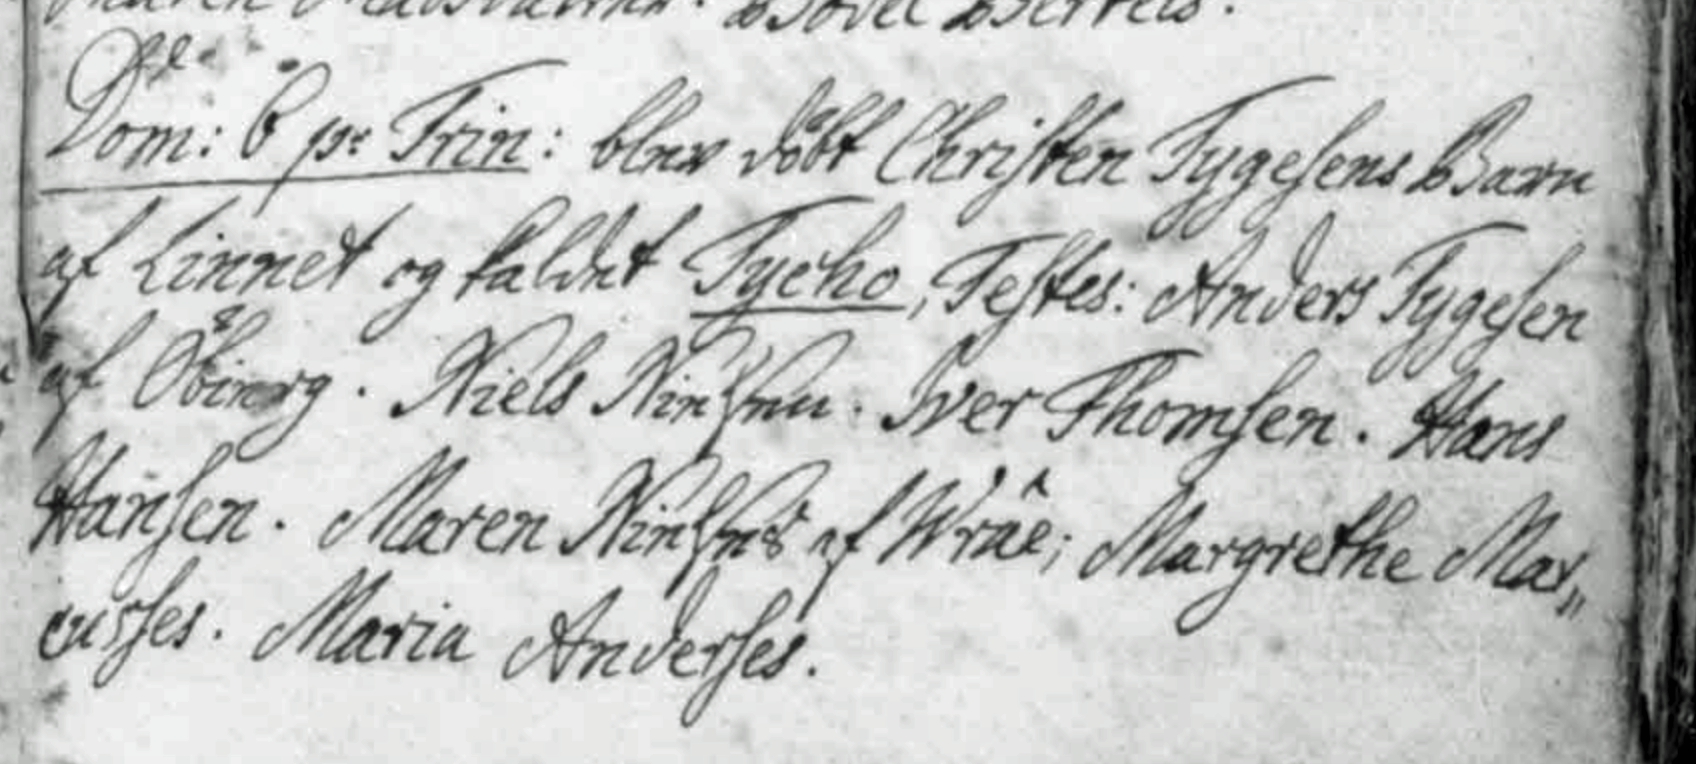 Bodel Bertels.
Dom: 6 p: Trin: blev döbt Christen Tygesens Barn
af Linnet og kaldet Tycho, Testes: Anders Tygesen
af Öbierg. Niels Nissen. Iver Thomsen. Hans
Hansen. Maren af Wräe; Margrethe Mar„
cusses. Maria Anderses.